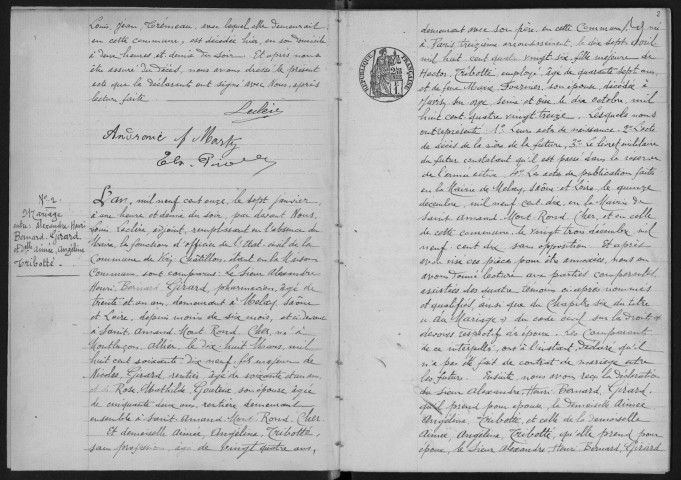 Louis, Jean Trémeau, avec lequel elle demeurait
en cette commune, est décédée hier, en son domicile
à deux heures et demie du soir. Et après nous
être assuré du décès, nous avons dressé le présent
acte que les déclarants ont signé avec Nous, après
lecture faite
Leclère
Marty
N° 2
Mariage
entre Alexandre Henri
Bernard Girard
et Delle Aimée, Angéline
Tribotté
L'an mil neuf cent onze, le sept janvier
à une heure et demie du soir, par devant Nous
Louis Leclère, adjoint, remplissant en l'absence du
Maire, les fonctions d'officier de l'état civil de la
Commune de Viry Châtillon, étant en la Maison
Commune, sont comparus: Le Sieur Alexandre
Henri Bernard Girard pharmacien, âgé de
trente et un ans, demeurant à Melay Saône
et Loire, depuis moins de six mois, et avant
à Saint Amand Mont Rond, Cher, né à
Montluçon, Allier, le dix huit Mars, mil
huit cent soixante dix neuf, fils majeur de
Nicolas Girard, rentier, âgé de soixante et un ans
et de Rose Mathilde son épouse âgée
de cinquante deux ans, rentière demeurant
ensemble à Saint Amand Mont Rond, Cher
Et demoiselle Aimée, Angéline, Tribotté,
sans profession, âgée de vingt quatre ans,
2
demeurant avec son père, en cette Commune, née
à Paris treizième arrondissement, le dix sept
mil huit cent quatre vingt six, fille majeure de
Hector Tribotté, employé, âgé de quarante sept ans,
et de feue Marie Fournier, son épouse, décédée à
Juvisy sur orge, Seine et oise, le dix octobre, mil
huit cent quatre vingt treize. Lesquels nous
ont représenté 1° Leurs actes de naissance. 2° L'acte
de décès de la mère de la future, 3° Le livret militaire
du futur constatant qu'il est passé dans la réserve
de l'armée active. 4° Les actes de publication faite
en la Mairie de Melay, Saône et Loire, le quinze
décembre, mil neuf cent dix, en la Mairie de
Saint Amand Mont Rond Cher, et en celle
de cette commune, le vingt trois décembre, mil
neuf cent dix sans opposition. Et après
avoir visé ces pièces pour être annexées, nous en
avons donné lecture aux parties comparantes
assistées des quatre témoins ci après nommés
et qualifiés, ainsi que du Chapitre six du titre
« du Mariage » du code civil sur les droits et
devoirs respectifs des époux. Les Comparants
de ce interpellés, ont à l'instant déclaré qu'il
n'a pas été fait de contrat de mariage entre
les futurs. Ensuite, nous avons reçu la déclaration
du Sieur Alexandre Henri Bernard Girard,
qu'il prend pour épouse, la demoiselle Aimée
Angéline, Tribotté, et celle de la demoiselle
Aimée, Angéline, Tribotté, qu'elle prend pour
époux, le Sieur Alexandre Henri Bernard, Girard
RÉPUBLIQUE FRANÇAISE